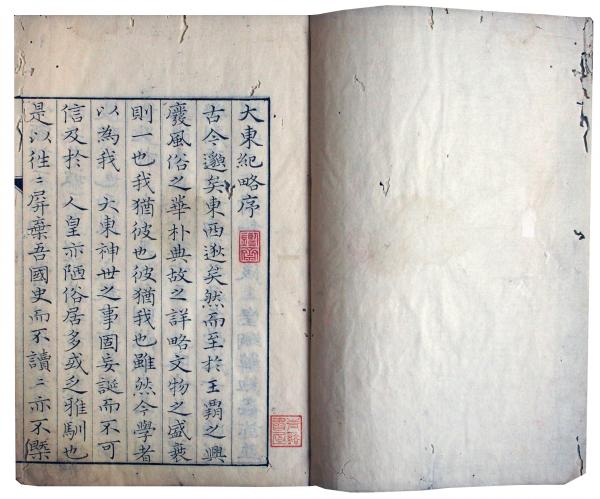 大東紀略序
古今邈矣東西逖矣然而至於王霸之興
廢風俗之華朴典故之詳略文物之盛衰
則一也我猶彼也彼猶我也雖然今學者
以為我 大東神世之事固妄誕而不可
信及於 人皇亦陋俗居多或乏雅馴也
是以徃〻屏棄吾國史而不讀〻亦不槩